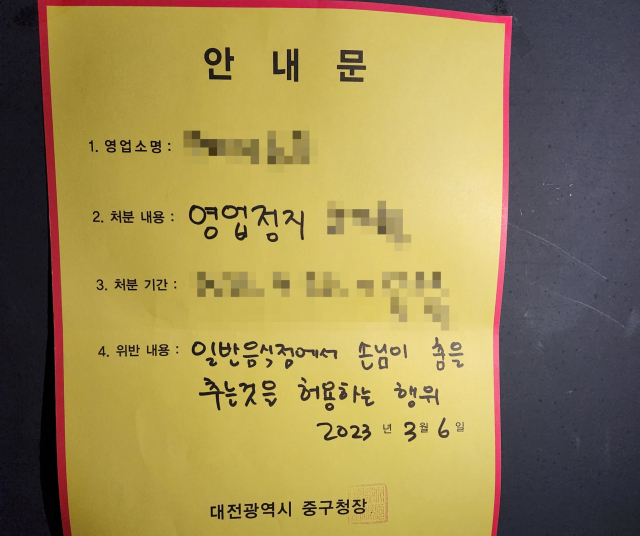 안 내 문
1. 영업소명 :
2. 처분 내용 : 영업정지
3. 처분 기간 :
4. 위반 내용 : 일반음식점에서 손님이 춤을
추는것을 허용하는 행위
2023 년 3 월 6 일
대전광역시 중구청장